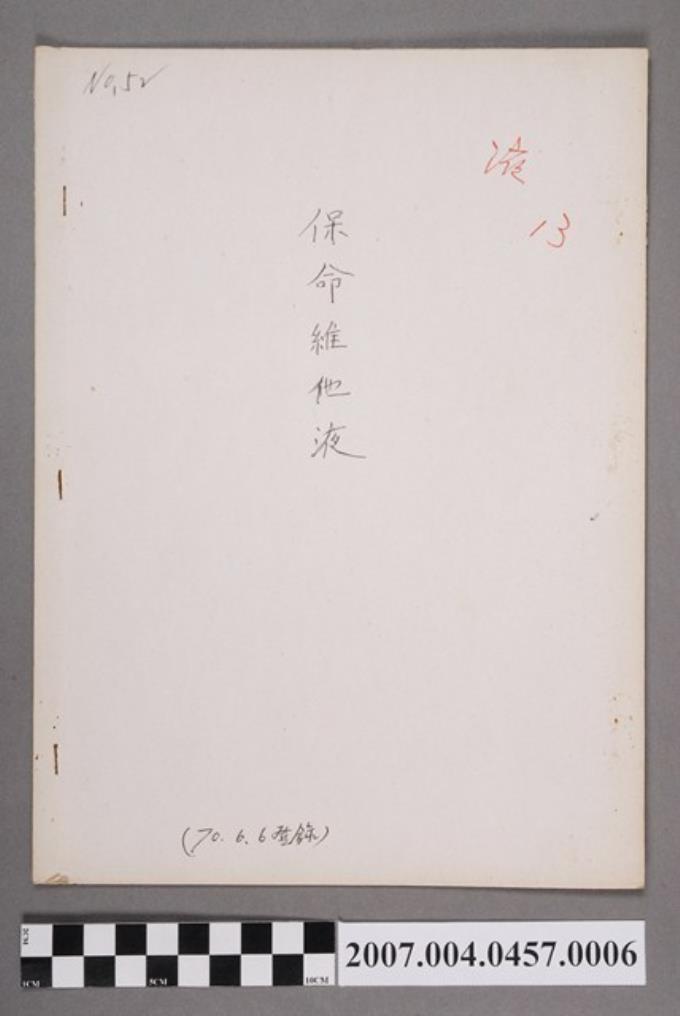 No.52
液
13
保命維他液
(70.6.6登錄)
2CM
1CM
5CM
10CM
2007.004.0457.0006